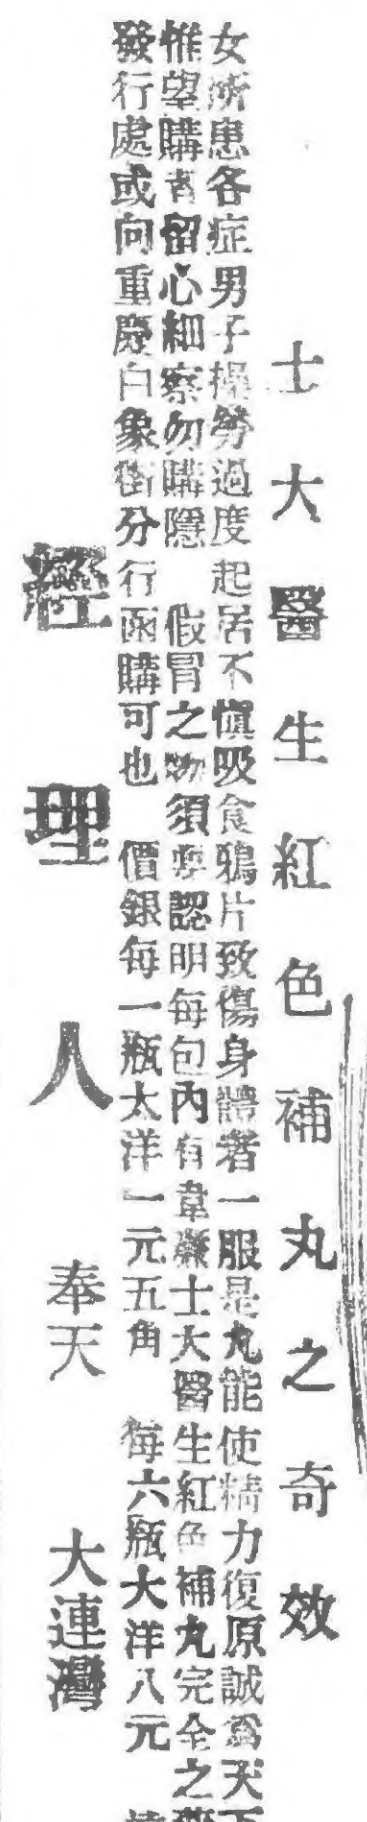 士大醫生紅色補丸之奇效
女所患各症男子操勞過度起居不慎吸食鴉片致傷身體者一服是丸能使精力復原誠為天下
惟望購者留心細察勿購隱 假冒之物須要認明每包內有韋廉士大醫生紅色補丸完全之
發行處或向重慶白象街分行函購可也 價銀每一瓶大洋一元五角 每六瓶大洋八元
經理人 奉天 大連灣